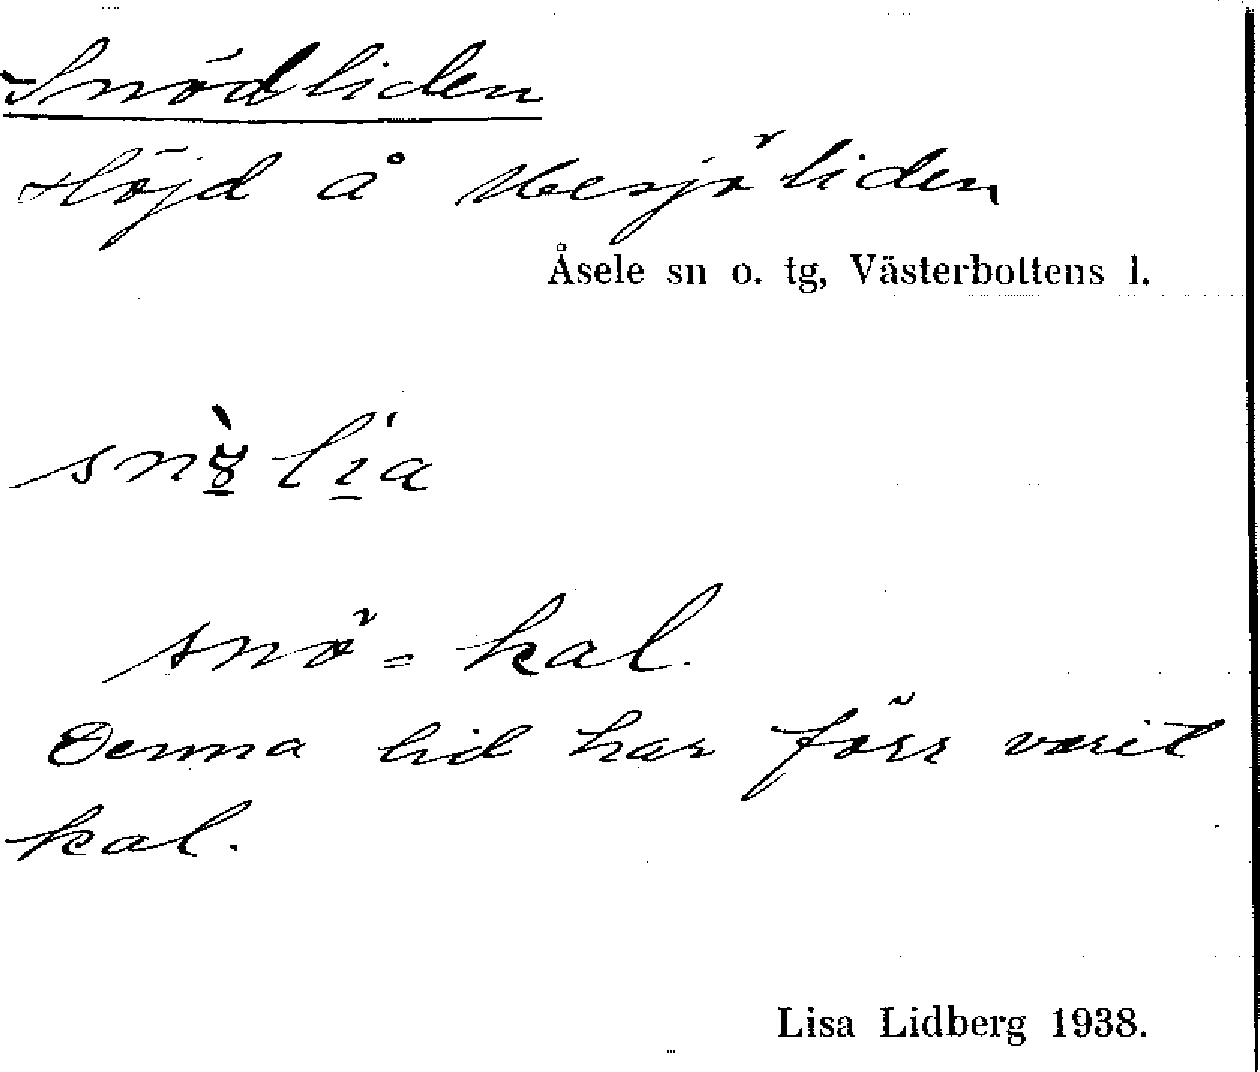 Snödliden
Höjd å Mesjöliden
Åsele sn o. tg, Västerbottens l.
snø̀lía
snö = kal.
Denna lid har förr varit
kal.
Lisa Lidberg 1938.